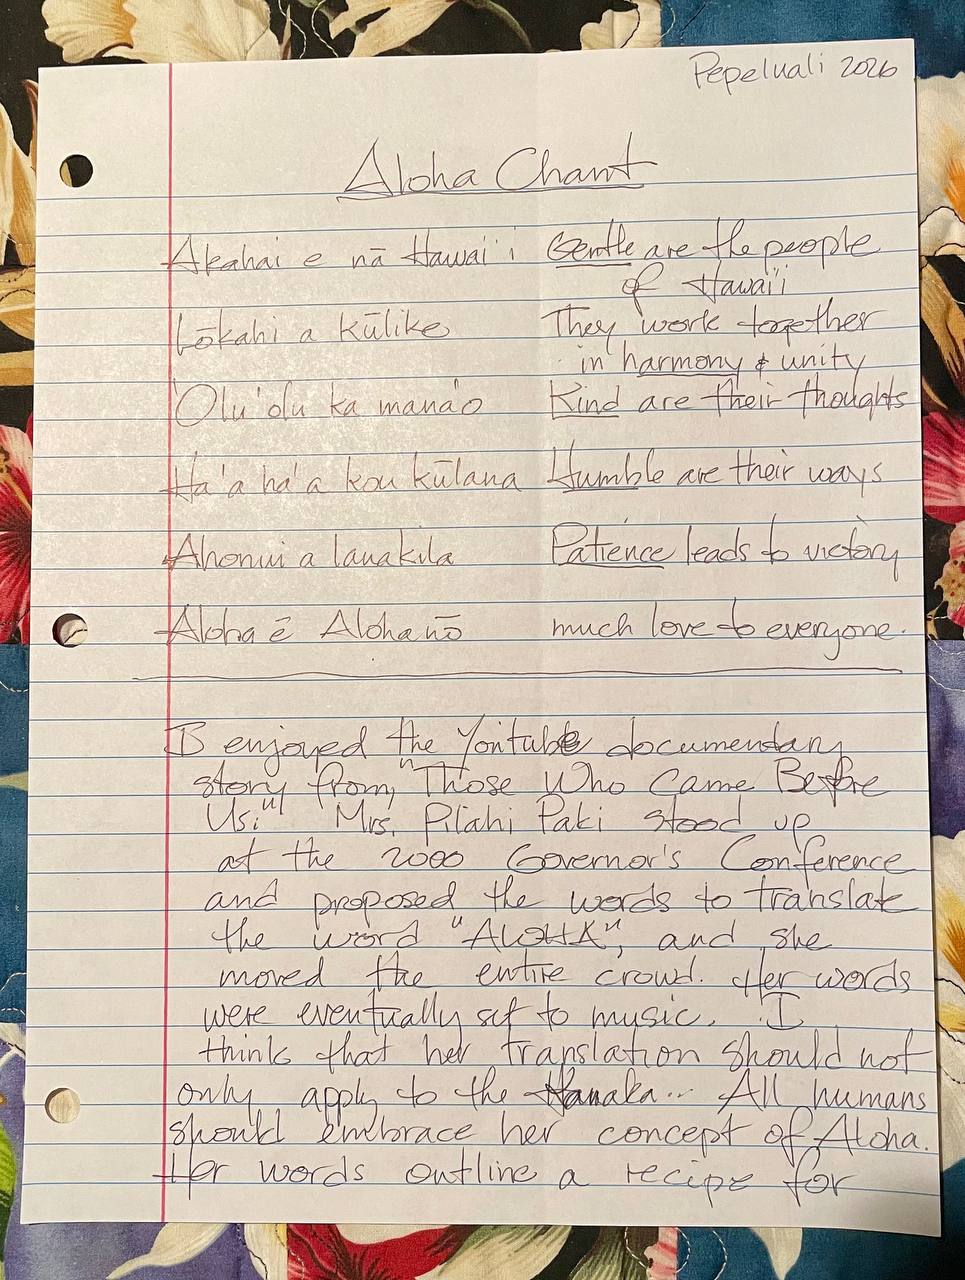 Pepeluali 2026
Aloha Chant
Akahai e nā Hawai'i Gentle are the people
of Hawai'i
Lōkahi a kūlike They work together
in harmony & unity
'Olu'olu ka mana'o Kind are their thoughts
Ha'a ha'a kou kūlana Humble are their ways
Ahonui a lanakila Patience leads to victory
Aloha ē Aloha nō much love to everyone.
I enjoyed the Youtube documentary
story from, "Those Who Came Before
Us." Mrs. Pilahi Paki stood up
at the 2000 Governor's Conference
and proposed the words to translate
the word "ALOHA", and she
moved the entire crowd. Her words
were eventually set to music. I
think that her translation should not
only apply to the Kanaka.. All humans
should embrace her concept of Aloha.
Her words outline a recipe for